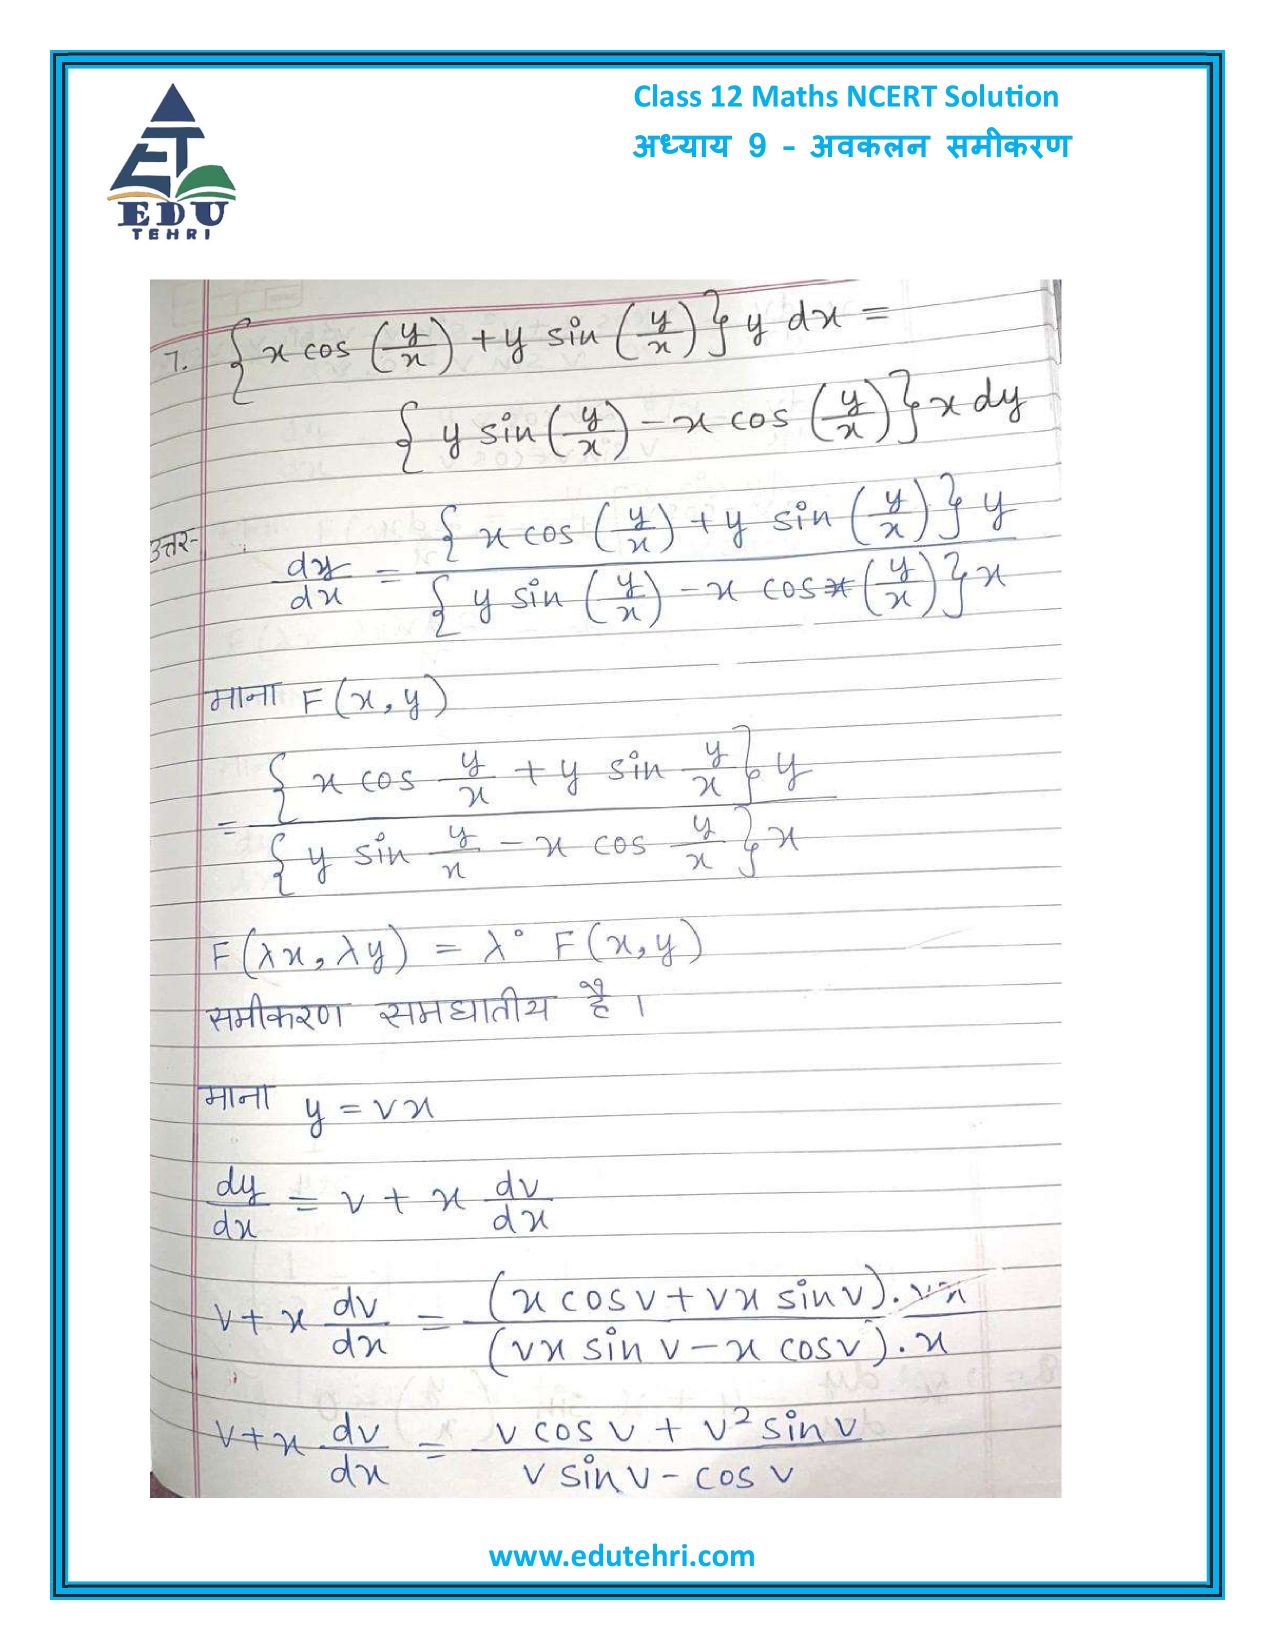 Class 12 Maths NCERT Solution
अध्याय 9 - अवकलन समीकरण
EDU
TEHRI
7. { x cos (y/x) + y sin (y/x) } y dx =
{ y sin (y/x) - x cos (y/x) } x dy
उत्तर- dy/dx = { x cos (y/x) + y sin (y/x) } y / { y sin (y/x) - x cos (y/x) } x
माना F(x, y)
= { x cos y/x + y sin y/x } y / { y sin y/x - x cos y/x } x
F(λx, λy) = λ° F(x, y)
समीकरण समघातीय है ।
माना y = vx
dy/dx = v + x dv/dx
v + x dv/dx = (x cos v + vx sin v) . vx / (vx sin v - x cos v) . x
v + x dv/dx = v cos v + v² sin v / v sin v - cos v
www.edutehri.com